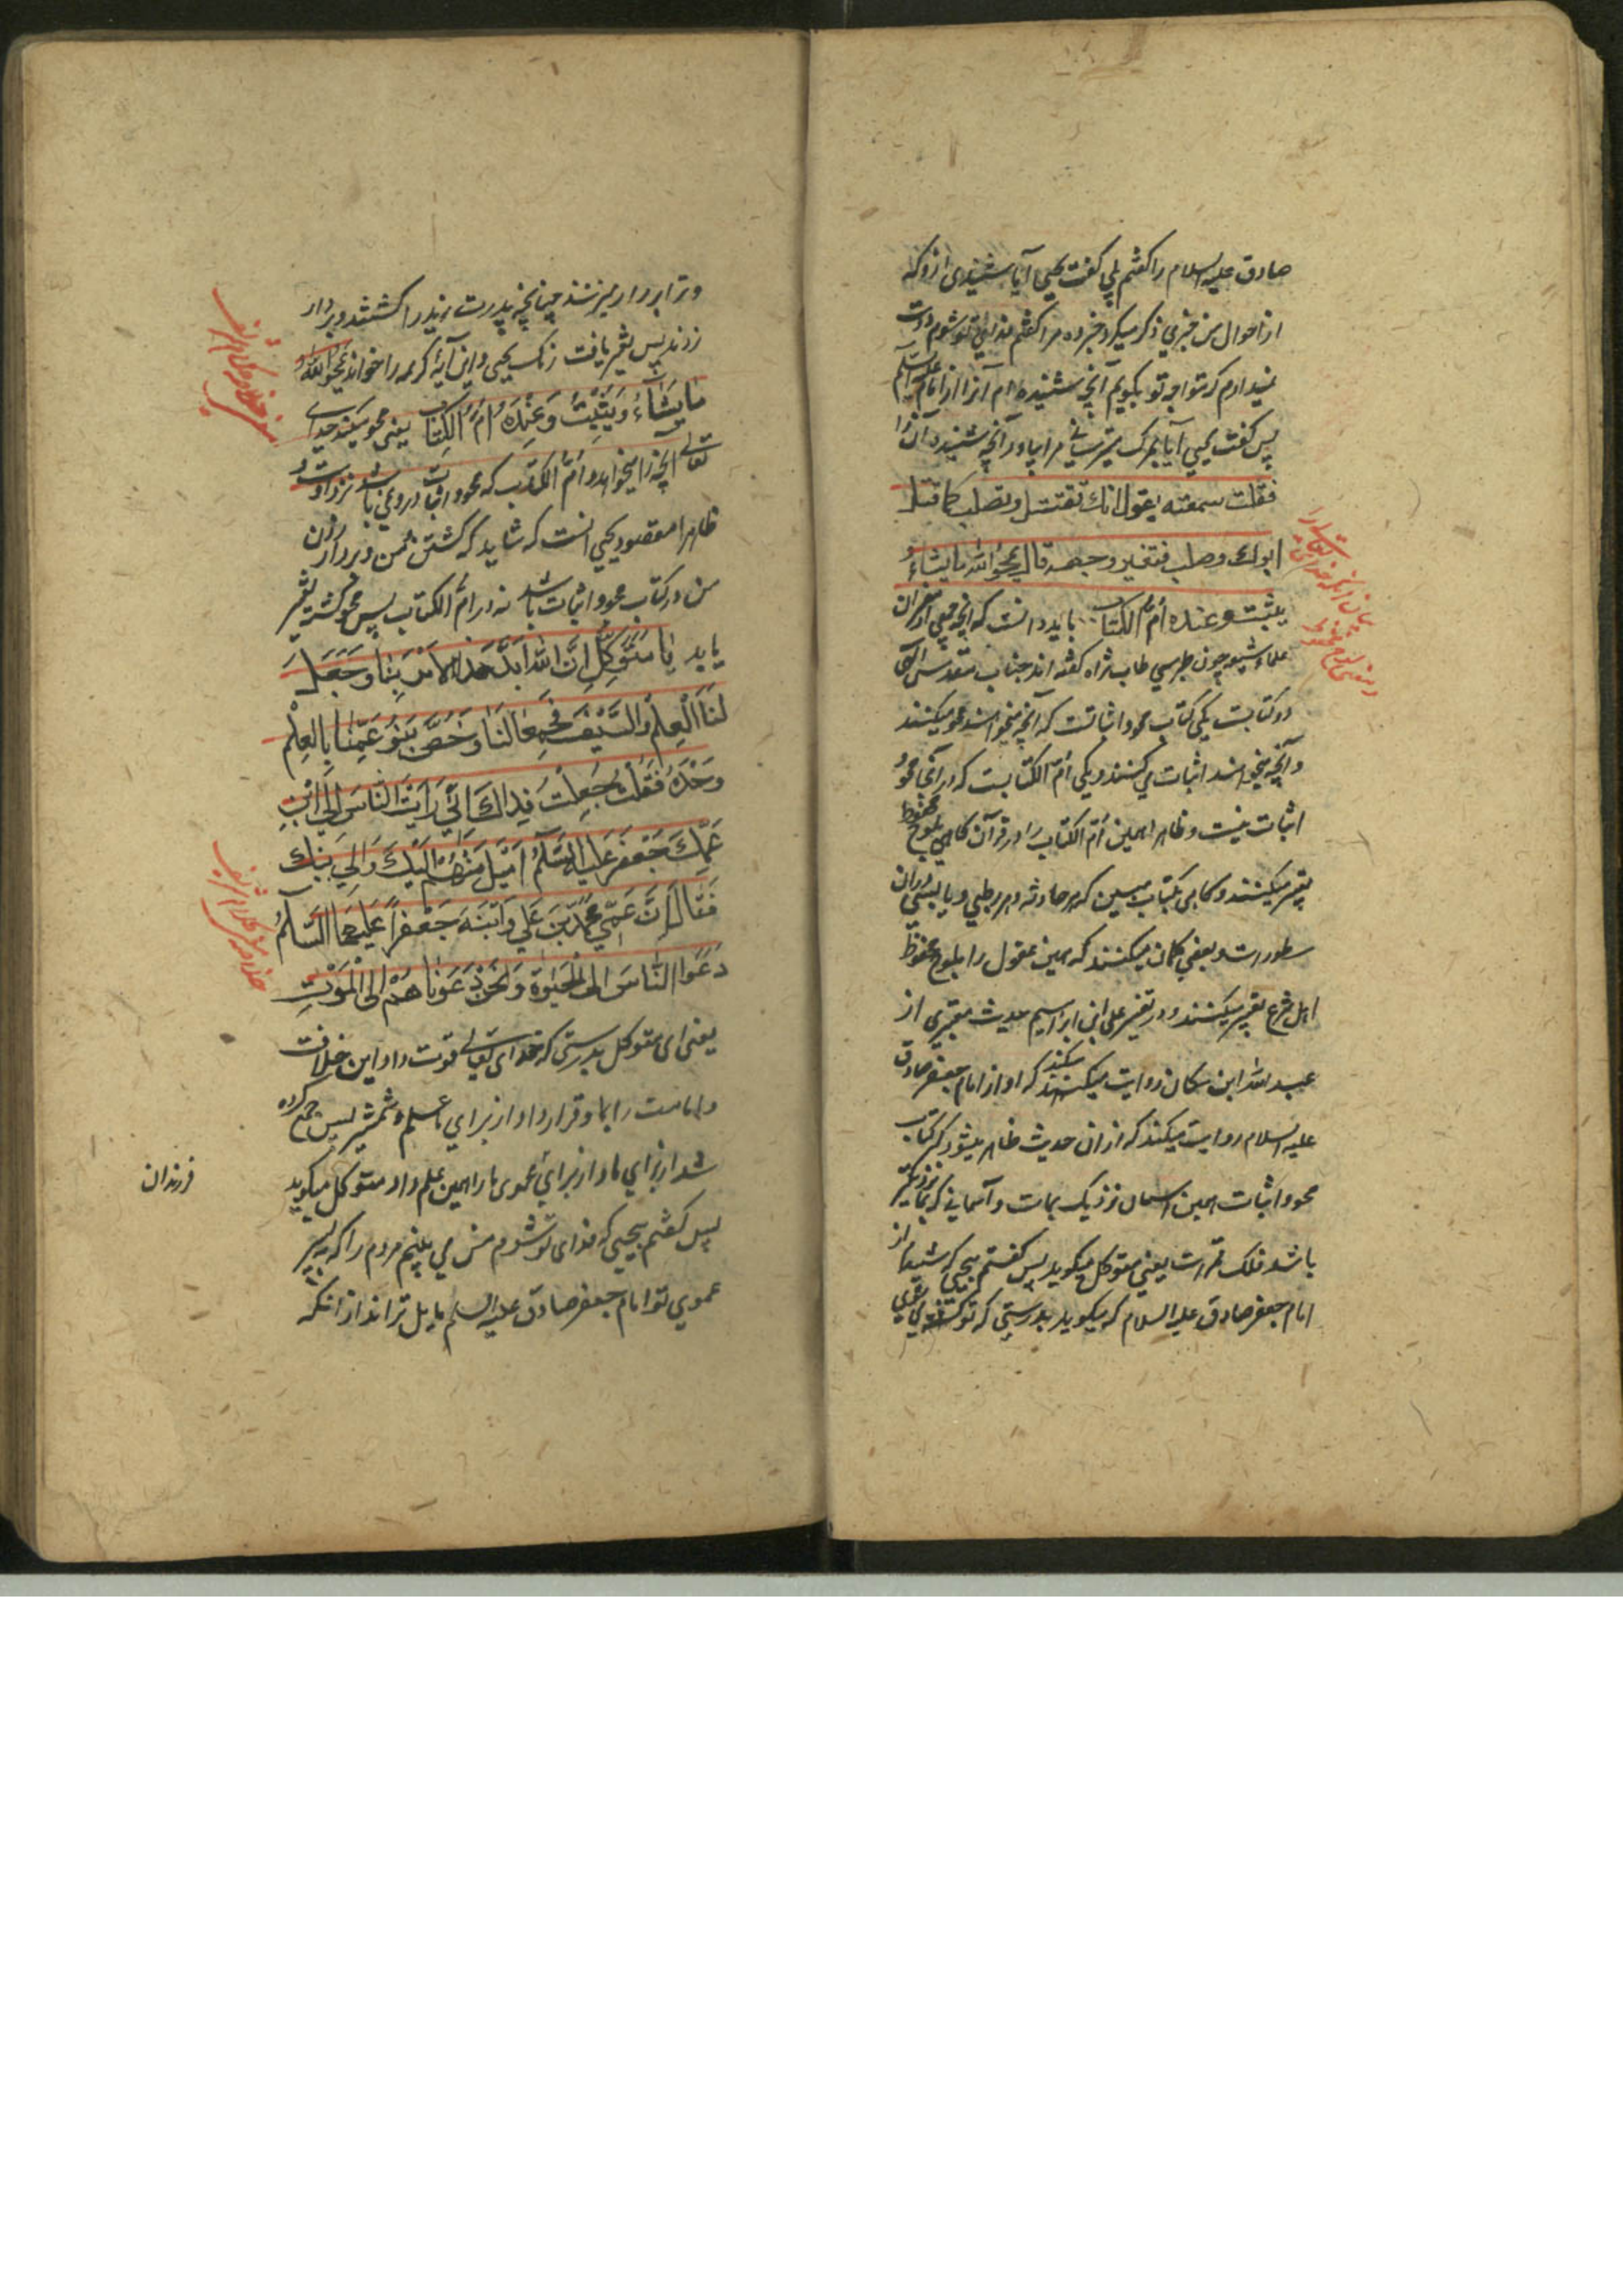 صادق علیه السلام را گفتم بلی گفت یحیی آیا شنیدی ازو که
از احوال من خبری ذکر میکرد خبر ده مرا گفتم فدای تو شوم دوست
نمیدارم که مواجه تو بگویم آنچه شنیده ام آنرا از امام علیه السلم
پس گفت یحیی آیا بمرگ میترسانی مرا بیاور آنچه شنیده آن را
فقلت سمعته یقول انك تقتل وتصلب کما قتل
ابوك وصلب فتغیر وجهه قال یمحو الله ما یشاء و
یثبت وعنده أمّ الکتاب باید دانست که آنچه جمعی از مفسران
علماء شیعه چون طبرسی طاب ثراه گفته اند جناب مقدس الهی
دو کتابست یکی کتاب محو و اثباتست که آنچه میخواهند محو میکنند
و آنچه میخواهند اثبات می کنند و یکی أمّ الکتابست که در آنجا محو و
اثبات نیست و ظاهرا همین أمّ الکتاب را در قرآن گاهی بلوح محفوظ
تعبیر میکنند و گاهی بکتاب مبین که هر حادثه و هر رطبی و یابسی در آن
مسطورست و بعضی گمان میکنند که همین عقول را بلوح محفوظ
اهل شرع تعبیر میکنند و در تفسیر علی ابن ابراهیم حدیث معتبری از
عبد الله ابن مسکان روایت میکنند که او از امام جعفر صادق
علیه السلام روایت میکند که از ان حدیث ظاهر میشود که کتاب
محو و اثبات همین آسمان نزدیک بماست و آسمانی که بما نزدیکتر
باشد فلک قمرست یعنی متوکل میگوید پس گفتم بیحیی که شنیدم از
امام جعفر صادق علیه السلام که میگوید بدرستی که تو کشته می شوی
بیان آنکه خدای تعالی را
و معنی لوح محفوظ
و ترا بردار میزنند چنانچه پدرت زید را کشتند و بردار
زدند پس تغیر یافت رنگ یحیی و این آیۀ کریمه را خواند یمحو الله
ما یَشَآءُ وَیُثْبِتُ وَعِنْدَهُ أُمُّ الْکِتَاب یعنی محو میکند خدای
تعالی آنچه را میخواهد و أمّ الکتاب که محو و اثبات در وی نباشد نزد اوست و
ظاهرا مقصود یحیی انست که شاید که کشتن من و بردار زدن
من در کتاب محو و اثبات باشد نه در امّ الکتاب پس محو گشته تغیر
یابد یا مُتَوَکِّلُ اِنَّ اللهَ اَیَّدَ هَذَا الاَمْرَ بِنَا وَجَعَلَ
لَنَا الْعِلْمَ وَالسَّیْفَ فَجُمِعَا لَنَا وَخُصَّ بَنُو عَمِّنَا بِالْعِلْمِ
وَحْدَهُ فَقُلْتُ جُعِلْتُ فِدَاكَ اِنِّی رَأَیْتُ النَّاسَ اِلَی ابْنِ
عَمِّكَ جَعْفَرٍ عَلَیْهِ السَّلَامُ اَمْیَلَ مِنْهُمْ اِلَیْكَ وَاِلَی اَبِیكَ
فَقَالَ اِنَّ عَمِّی مُحَمَّدَ بْنَ عَلِیٍّ وَابْنَهُ جَعْفَراً عَلَیْهِمَا السَّلَامُ
دَعَوَا النَّاسَ اِلَی الْحَیٰوةِ وَنَحْنُ دَعَوْنَاهُمْ اِلَی الْمَوْتِ
یعنی ای متوکل بدرستی که خدای تعالی قوت داد این خلافت
و امامت را بما و قرار داد از برای ما علم و شمشیر پس جمع کرده
شد از برای ما و از برای عموی ما را همین علم داد متوکل میگوید
فرزندان
پس گفتم بیحیی که فدای تو شوم من می بینم مردم را که به پسر
عموی تو امام جعفر صادق علیه السلم مایل تر اند از انکه